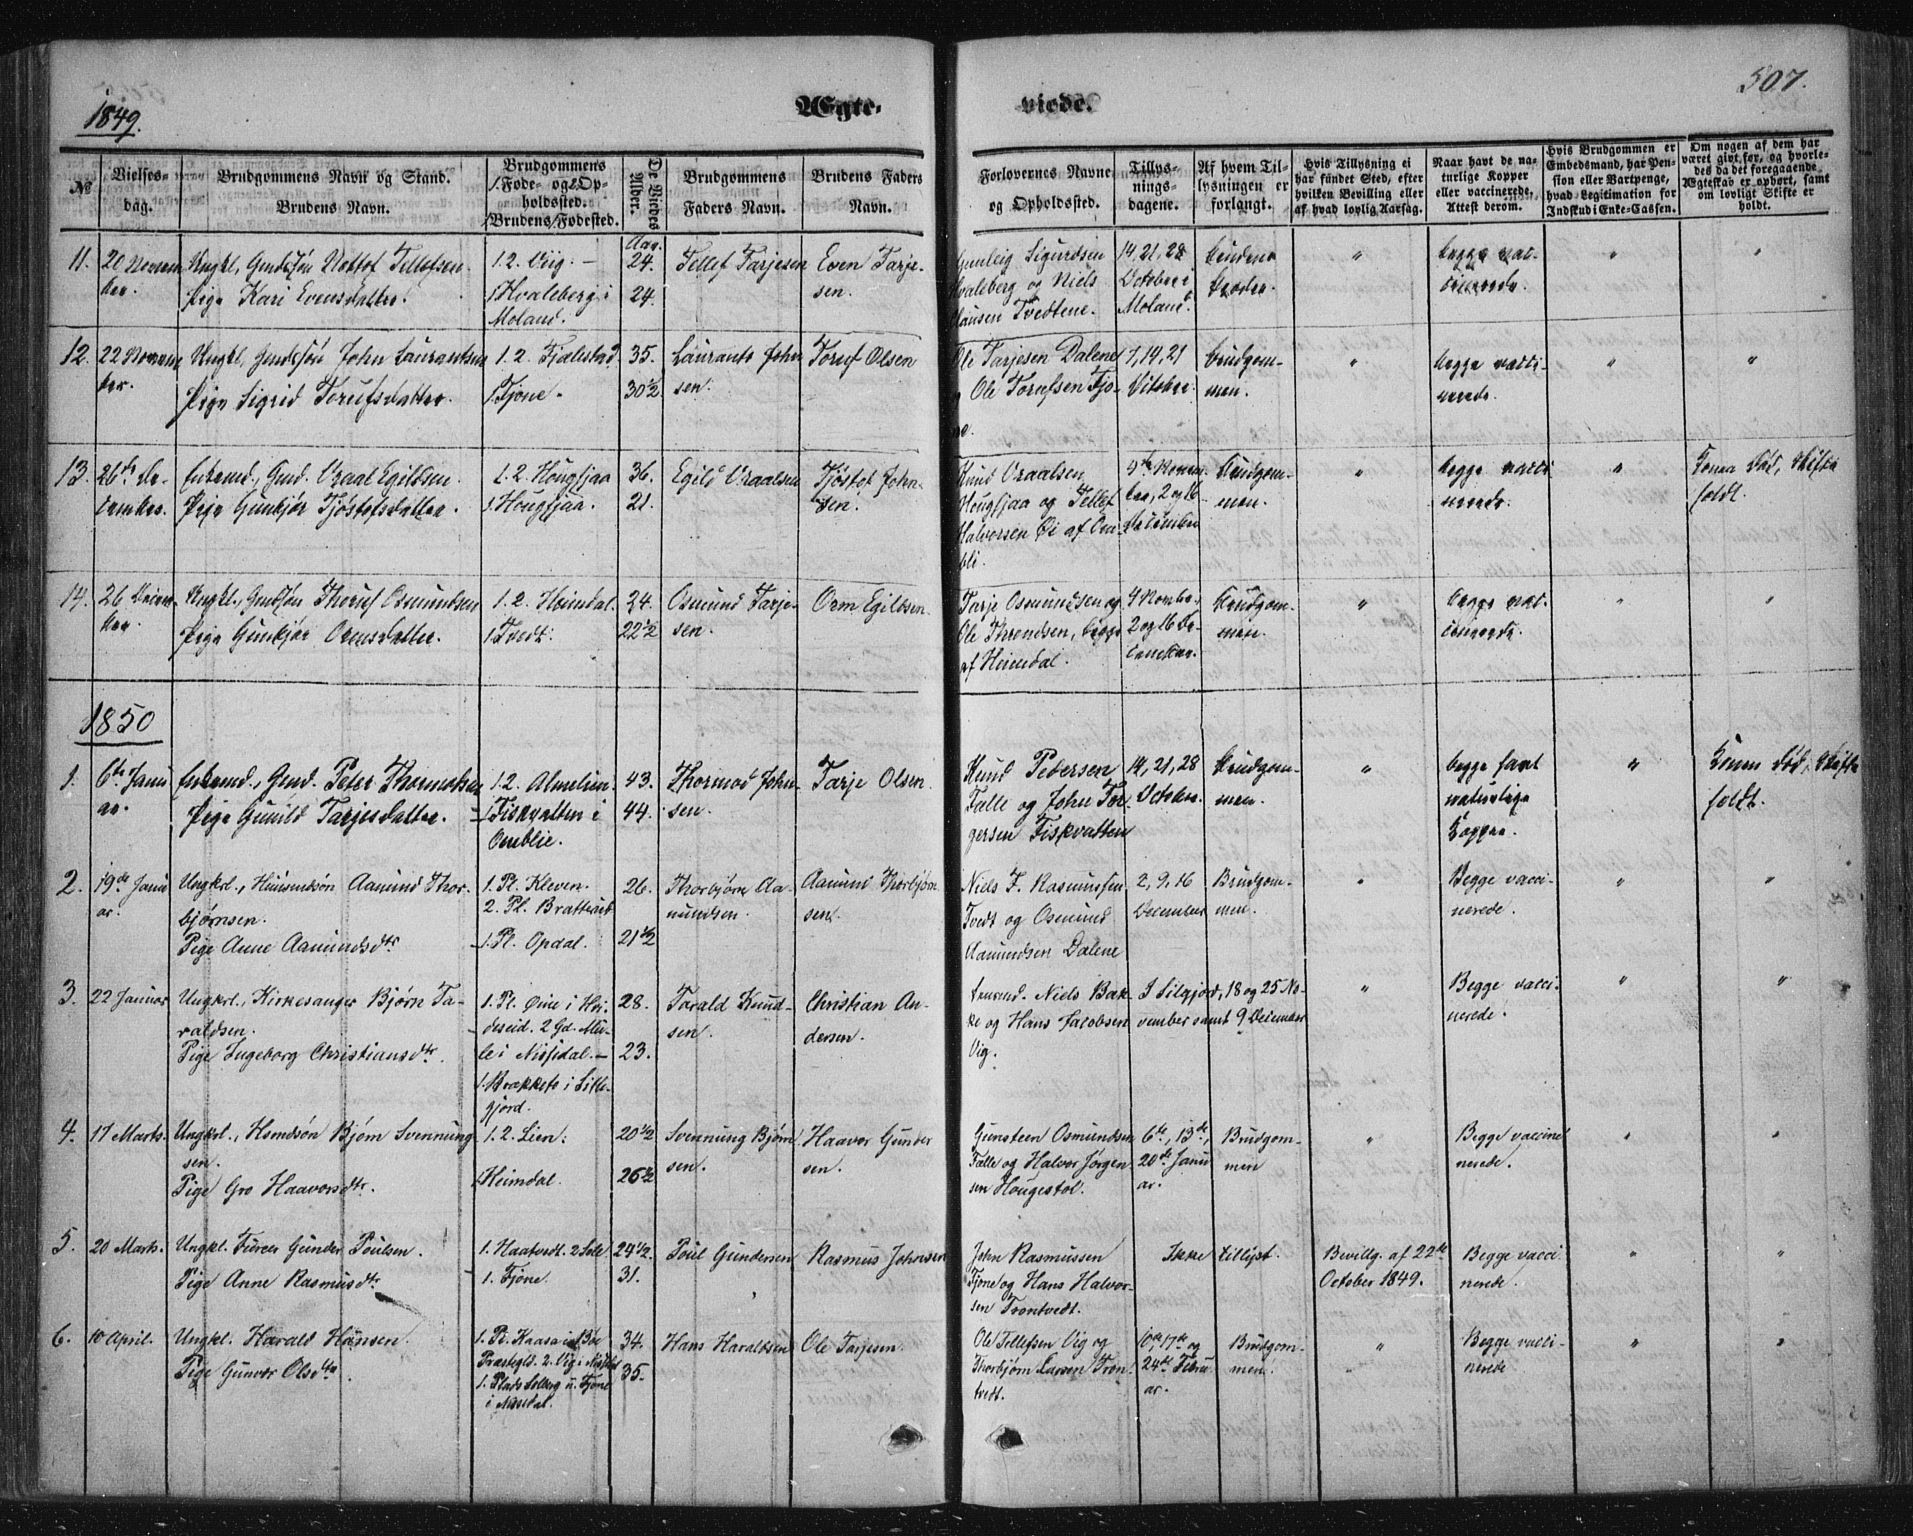 507.
1849.
Ægte-
viede.
№
Vielses-
dag.
Brudgommens Navn og Stand.
Brudens Navn.
Brudgommens
1. Føde- og 2. Op-
holdssted.
1. Brudens Fødested.
De Viedes
Alder.
Brudgommens
Faders Navn.
Brudens Faders
Navn.
Forlovernes Navne
og Opholdssted.
Tillys-
nings-
dagene.
Af hvem Til-
lysningen er
forlangt.
Hvis Tillysning ei
har fundet Sted, efter
hvilken Bevilling eller
af hvad lovlig Aarsag.
Naar havt de na-
turlige Kopper
eller vaccinerede,
Attest derom.
Hvis Brudgommen er
Embedsmand, har Pen-
sion eller Vartpenge,
hvad Legitimation for
Indskud i Enke-Cassen.
Om nogen af dem har
været gift før, og hvorle-
des da det foregaaende
Ægteskab er ophørt, samt
om lovligt Skifte er
holdt.
11. 20 Novem-
ber.
Ungkl., Gmdssøn Tellefsen
Pige Kari Evensdatter.
1. 2. Viig. –
1. Hvaleberg i
Moland.
Aar.
24.
24.
Tellef Tarjesen
Even Tarje-
sen.
Gunleig Sigurdsen
Hvaleberg og Niels
Hansen Tvedtene.
14, 21, 28
October i
Moland.
Brudens
Fader.
"
begge vac-
cinerede.
"
"
12. 22 Novem-
ber.
Ungkl., Gmdssøn John Laurantsen
Pige Sigrid Torufsdatter.
1. 2. Fjalestad
1. Fjone.
35.
30 1/2
Laurants John-
sen.
Toruf Olsen
Ole Tarjesen Dalene
Ole Torufsen Fjo-
ne.
7, 14, 21
October.
Brudgom-
men.
"
begge vacci-
nerede.
"
"
13. 26de De-
cember.
Enkemd., Gmd. Vraal Egildsen.
Pige Gunbjør Tjøstofsdatter.
1. 2. Hougsjaa
1. Hougsjaa.
36.
21.
Egild Vraalsen
Tjøstof John-
sen.
Knud Vraalsen
Hougsjaa og Tellef
Halvorsen Øi af Om-
bli.
4de Novem-
ber, 2 og 16
December
Brudgom-
men.
"
begge vacci-
nerede.
"
Konen død, Skifte
holdt.
14. 26 Decem-
ber
Ungkl., Gmdssøn Thoruf Osmundsen
Pige Gunbjør Ormsdatter.
1. 2. Heimdal.
1. Tvedt.
24.
22 1/2
Osmund Tarje-
sen.
Orm Egildsen.
Tarje Osmundsen og
Ole Throndsen, begge
af Heimdal.
4 Novbr.
2 og 16 De-
cember.
Brudgom-
men.
"
begge vac-
cinerede.
"
"
1850
1. 6te Janu-
ar.
Enkemd., Gmd. Peter Thormodsen
Pige Gunild Tarjesdatter.
1. 2. Almelien
1. Fiskvatten i
Omblie.
43.
44.
Thormod John-
sen.
Tarje Olsen.
Knud Pedersen
Falle og John Tor-
gersen Fiskvatten
14, 21, 28
October.
Brudgom-
men.
"
begge havt
naturlige
Kopper.
"
Konen død, Skifte
holdt.
2. 19de Janu-
ar.
Ungkrl., Huusmdsøn Aamund Thor-
bjørnsen.
Pige Anne Aamundsdtr
1. Pl. Kleven.
2. Pl. Bratterud
1. Pl. Opdal.
26.
21 1/2
Thorbjørn Aa-
mundsen.
Aamund Thorbjørn-
sen.
Niels F. Rasmussen
Tvedt og Osmund
Aamundsen Dalene
2, 9, 16
December
Brudgom-
men.
"
Begge vacci-
nerede.
"
"
3. 22 Januar
Ungkrl., Kirkesanger Bjørn Ta-
raldsen.
Pige Ingeborg Christiansdtr
1. Pl. Øine i Hvi-
deseid. 2 Gd. Mu-
le i Nissedal. –
1. Brækkete i Sille-
gjord.
28.
23.
Tarald Knud-
sen.
Christian An-
dersen.
Niels Bak-
ke og Hans Jacobsen
Vig.
I Silgjord, 18 og 25 No-
vember samt 9 December
"
Begge vacci-
nerede.
"
"
4. 17 Marts.
Ungkrl., Hsmdsøn Bjørn Svennung-
sen.
Pige Gro Haavorsdtr.
1. 2. Lien.
1. Heimdal.
20 1/2
26 1/2
Svennung Bjørn-
sen.
Haavor Gunder-
sen.
Gunsteen Osmundsen
Falle og Halvor Jørgen-
sen Hougestol.
6te, 13de,
20de Janu-
ar.
Brudgom-
men
"
Begge vacci-
nerede.
"
"
5. 20 Marts.
Ungkl. Gunder Poulsen.
Pige Anne Rasmusdtr
1. Haatvedt.
1. Fjone.
24 1/2.
31.
Poul Gundersen
Rasmus Johnsen
John Rasmussen
Fjone og Hans Halvor-
sen Trontvedt.
Ikke tillyst.
Bevillg. af 22de
October 1849.
Begge vacci-
nerede.
"
"
6. 10 April.
Ungkl. Harald Hansen.
Pige Gunvor Olsdtr.
1. Pl. Kaasa i Bøe
Præstegld. 2. Vig i Nissedal
1. Plads Solberg u. Fjone
i Nissedal.
34.
35.
Hans Haraldsen
Ole Tarjesen.
Ole Tellefsen Vig og
Thorbjørn Larsen Tron-
tvedt.
10de, 17de og
24de Febru-
ar.
Brudgom-
men.
"
Begge vacci-
nerede
"
"